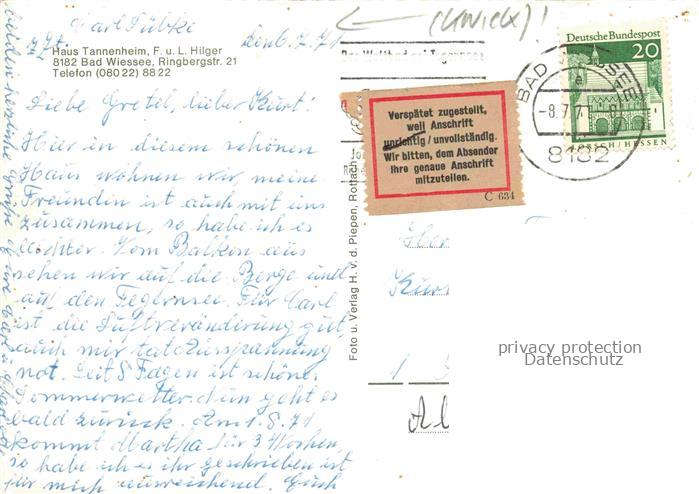 Carl Lübke
z.Zt.
den 6.7.71
Haus Tannenheim, F. u. L. Hilger
8182 Bad Wiessee, Ringbergstr. 21
Telefon (080 22) 88 22
Liebe Gretel, lieber Kurt!
Hier in diesem schönen
Haus wohnen wir meine
Freundin ist auch mit uns
zusammen, so habe ich es
leichter. Vom Balkon aus
sehen wir auf die Berge und
auf den Tegernsee. Für Carl
ist die Luftveränderung gut,
auch mir tat Ausspannung
not. Seit 8 Tagen ist schönes
Sommerwetter. Nun geht es
bald zurück. Am 1.8.71
kommt Martha für 3 Wochen,
so habe ich es ihr geschrieben ist
für mich ausreichend. Euch
beiden herzliche Grüße
Foto u. Verlag H. v. d. Piepen, Rottach
Deutsche Bundespost
20
LORSCH/HESSEN
BAD WIESSEE
e
-8.7.71
8182
Verspätet zugestellt,
weil Anschrift
unrichtig / unvollständig.
Wir bitten, dem Absender
Ihre genaue Anschrift
mitzuteilen.
C 634
Kurt
1
privacy protection
Datenschutz